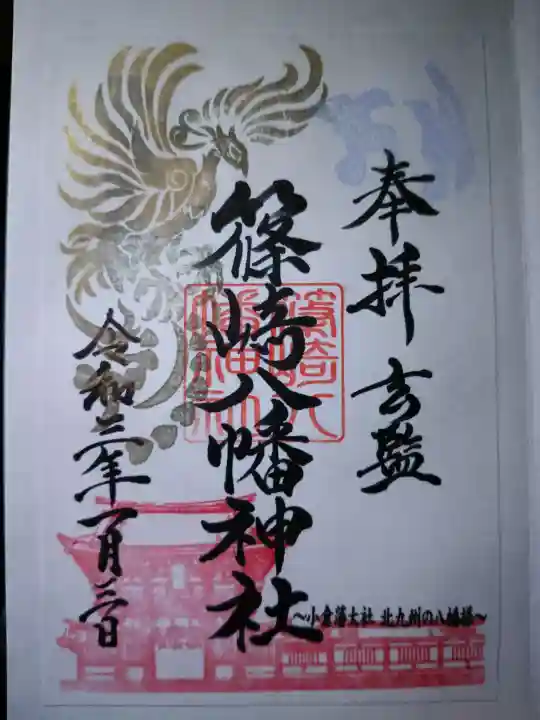 奉拝
篠崎八幡神社
篠崎八
幡神社
〜小倉藩大社 北九州の八幡様〜
令和二年一月三日